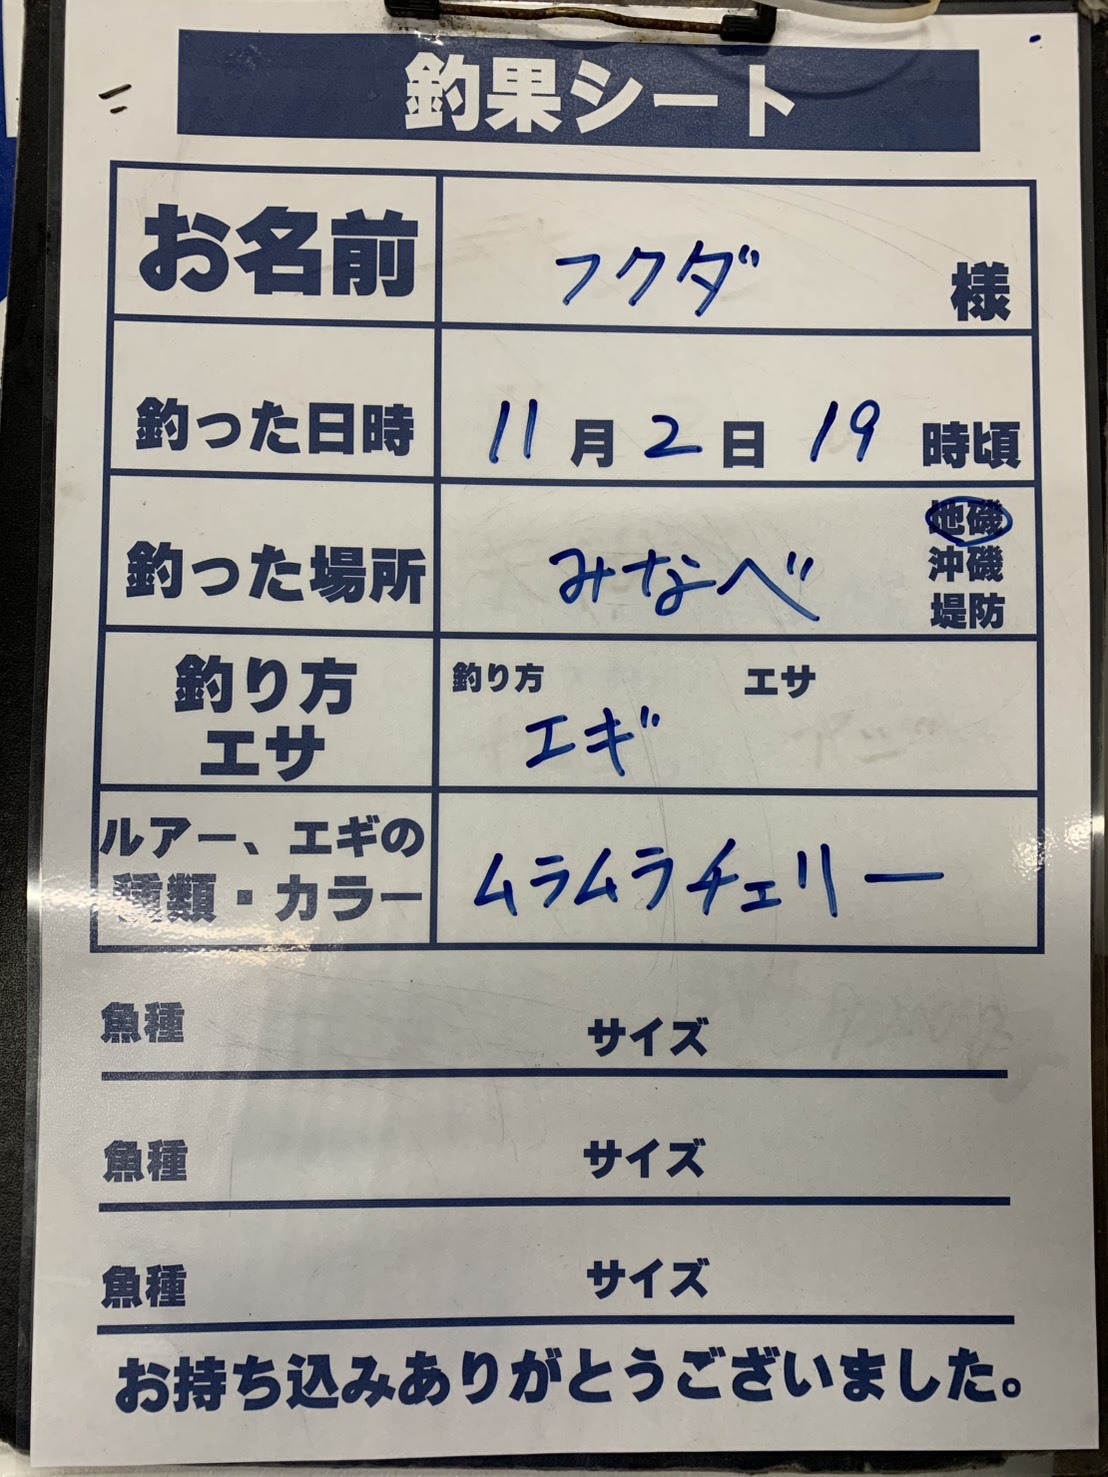 釣果シート
お名前
フクダ 様
釣った日時
11月2日19時頃
釣った場所
みなべ
地磯
沖磯
堤防
釣り方
エサ
釣り方 エサ
エギ
ルアー、エギの
種類・カラー
ムラムラチェリー
魚種 サイズ
魚種 サイズ
魚種 サイズ
お持ち込みありがとうございました。